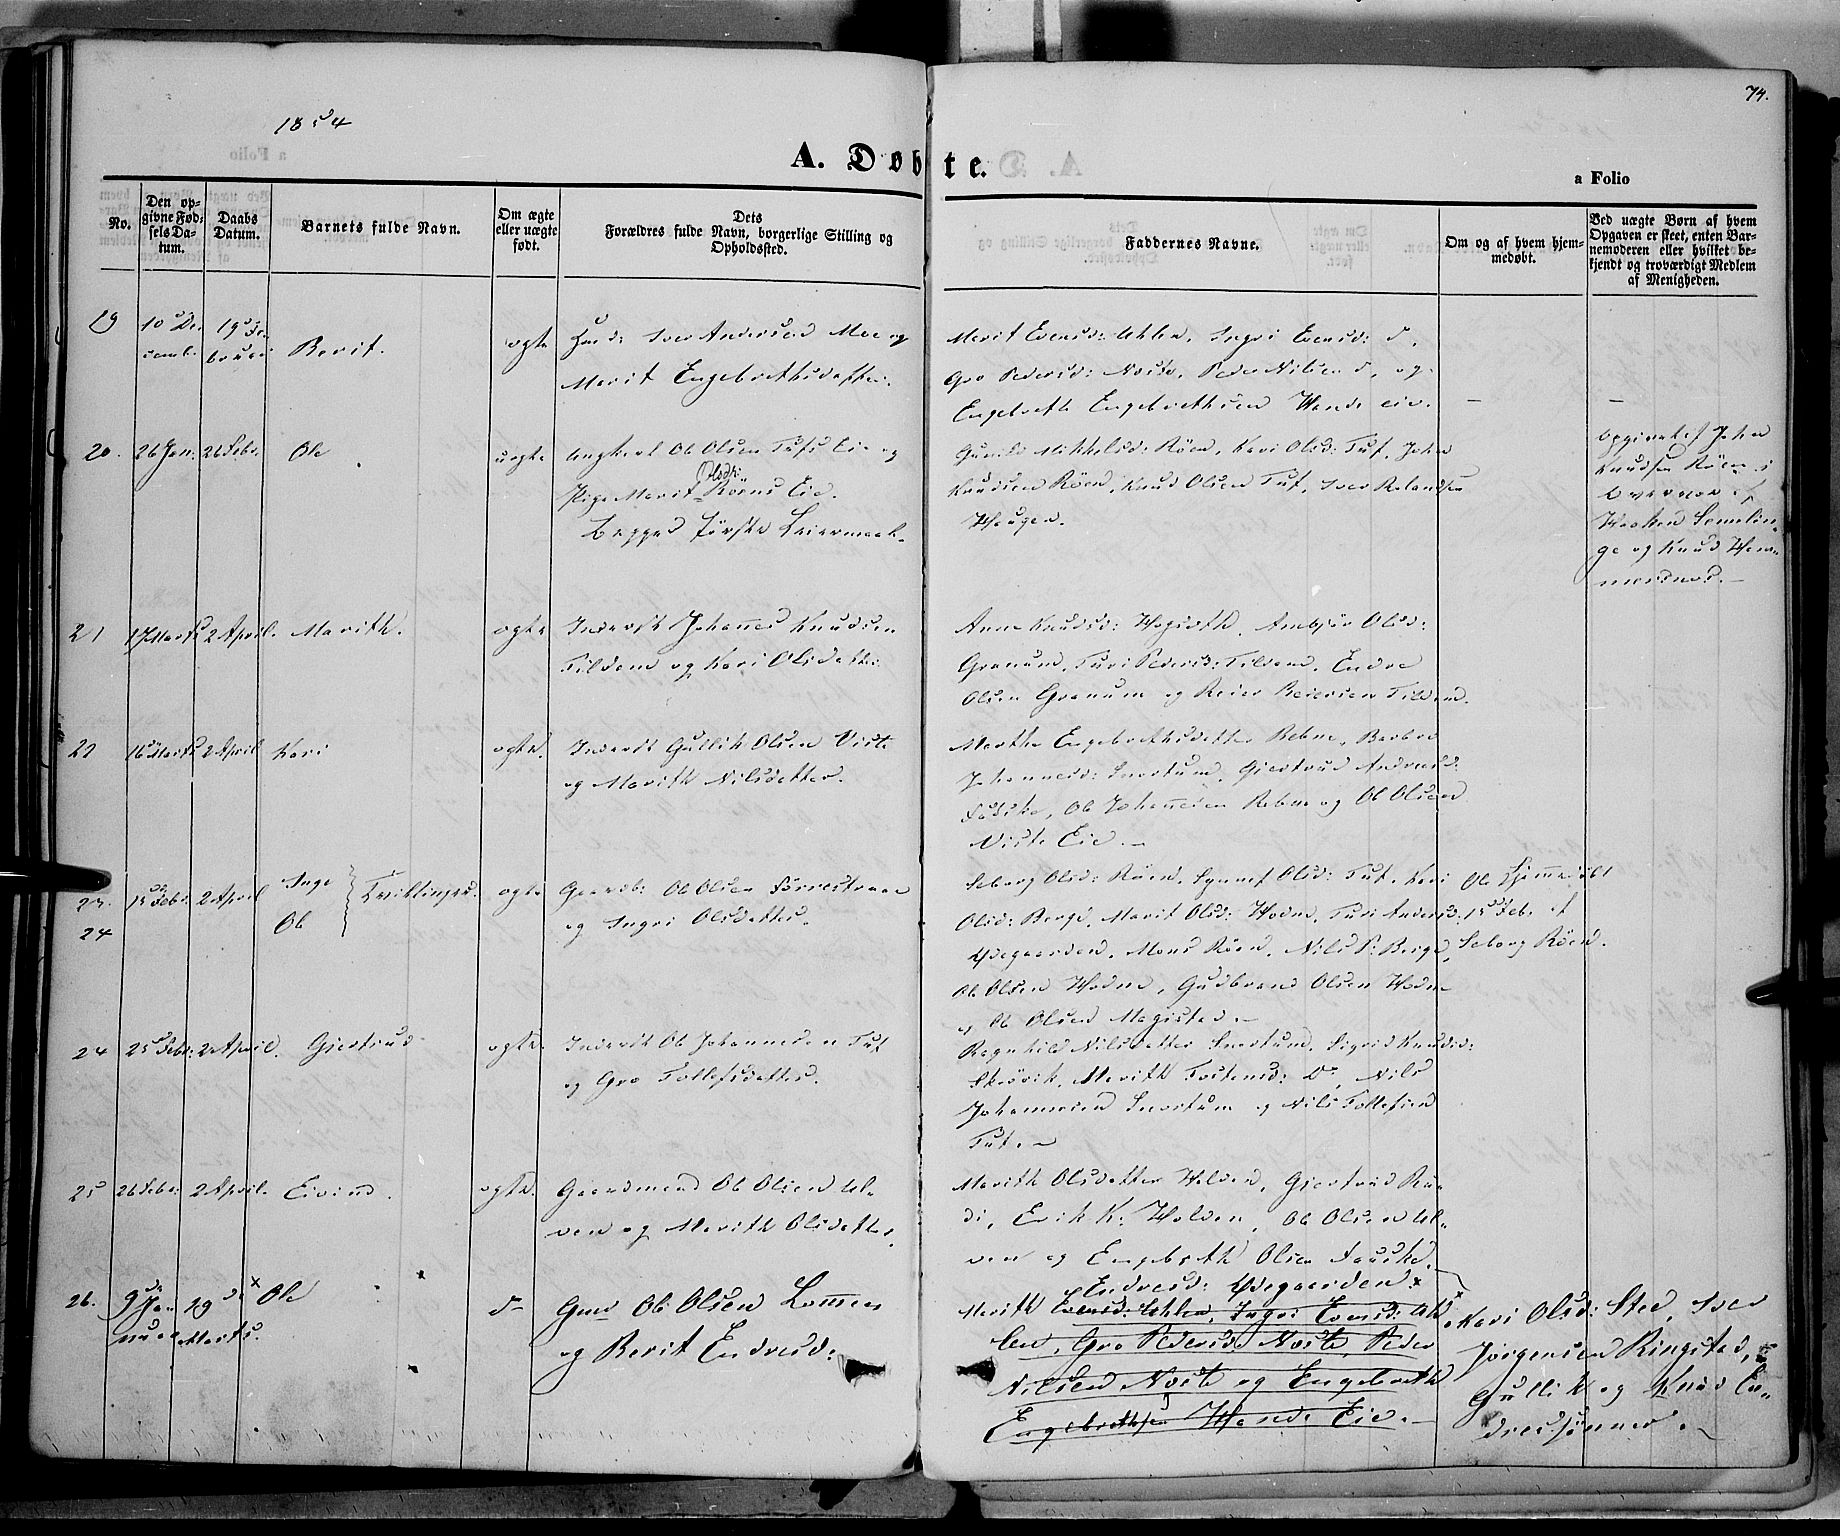 74.
1854
A. Døbte.
a Folio
No.
Den op-
givne Fød-
sels Da-
tum.
Daabs
Datum.
Barnets fulde Navn.
Om ægte
eller uægte
født.
Dets
Forældres fulde Navn, borgerlige Stilling og
Opholdssted.
Faddernes Navne.
Om og af hvem hjem-
medøbt.
Ved uægte Børn af hvem
Opgaven er skeet, enten Bar-
nemoderen eller hvilket be-
kjendt og troværdigt Medlem
af Menigheden.
19 10 De 19 Fe-
cemb. bruar Berit. ægte Iver Andersen Moe og
Marit Engebrethsdatter.
Marit Eversd: Uhlen, Ingri Eversd:
Gro Pedersd: Noste, Peder Nilsen, og
Engebreth Engebrethsen Wende eie. –
20. 26 Jan: 26 Febr. Ole uægte Ungkarl Ole Olsen Tufs Eie og
Pige Marit Olsdr: Röens Eie.
begges første Leiermaal.
Gunild Mikkelsd: Röen, Kari Olsd: Tuf, John
Knudsen Röen, Knud Olsen Tuf, Iver Rolandsen
Haugen.
opgivet af John
Knudsen Röen i
Overvær af
Haaken Semelin-
ge og Knud Hem-
mersnes. –
21 17 Marts 2 April. Marith. ægte Inderst Johannes Knudsen
Tildem og Kari Olsdatter
Anne Knudsd: Hegseth, Ambjør Olsd:
Granum, Turi Pedersd: Tildem, Endre
Olsen Granum og Reier Reiersen Tildem.
22 16 Marts 2 April Kari ægte. Inderst Gullik Olsen Viste
og Marith Nilsdatter.
Marthe Engebrethsdatter Rebne, Barbro
Johannesd: Snortum, Gjertrud Andersd:
Fuske, Ole Johannesen Rebne og Ole Olsen
Viste Eie. –
23. 15 Febr. 2 April Inge Tvillinger. ægte Gaardb: Ole Olsen Førrestrand
24 Ole og Ingri Olsdatter.
Seborg Olsd: Röen, Synnef Olsd: Tuf, Kari
Olsd: Berge, Marit Olsd: Hodne, Turi Andersd:
Ødegaarden, Mons Röen, Nils P: Berge,
Ole Olsen Hodne, Gudbrand Olsen Hodne
og Ole Olsen Magistad. –
Ole Hjemmedøbt
15 Feb. af
Seborg Röen.
24 25 Febr. 2 April. Gjertrud ægte. Inderst Ole Johannesen Tuf
og Gro Tollefsdatter.
Ragnhild Nilsdatter Snortum, Sigrid Knudsd:
Skrövik, Marith Tostensd: Do, Nils
Johannesen Snortum og Nils Tollefsen
Tuf. –
25 26 Febr. 2 April. Eivind. ægte. Gaardmand Ole Olsen Ul-
ven og Marith Olsdatter.
Marith Olsdatter Holden, Gjertrud Rua-
di, Erik K: Holden, Ole Olsen Ul-
ven og Engebreth Olsen Fauske.
26. 9 Ja- 29 x Ole do Gmd Ole Olsen Lommen
nuar Marts. og Berit Endresd:
Endresd: Ødegaarden x
Marith Eversd: Uhlen, Ingri Eversd: Uh-
len, Gro Pedersd: Noste, Peder
Nilsen Noste og Engebreth
Engebrethsen Wende Eie. –
x Kari Olsd: Sted, Iver
Jørgensen Ringstad,
Gullik og Knud En-
dressønner. –